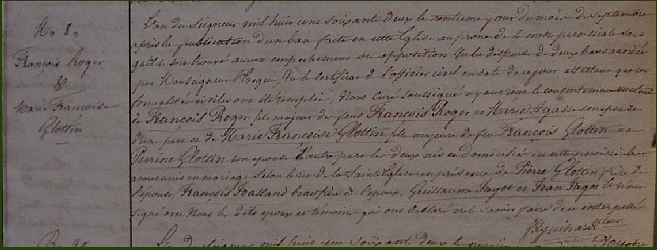 No. 8.
François Roger
&
Marie Françoise
Glottin
L'an du Seigneur mil huit cent soixante deux le trentième jour du mois de Septembre
après la publication d'un ban faite en cette Eglise au prône de la messe paroissiale sans
qu'il se soit trouvé aucun empêchement ou opposition Vu la dispense de deux bans accordée
par Monseigneur l'Evêque, Vu le certificat de l'officier civil en date de ce jour attestant que les
formalités civiles ont été remplies, Nous curé soussigné avons reçu le consentement mutuel
de François Roger fils majeur de feus François Roger et Marie son épouse
d'une part et de Marie Françoise Glottin fille majeure de feu François Glottin et
Perrine Glottin son épouse d'autre part les deux nés et domiciliés en cette paroisse les
avons unis en mariage selon le rite de la Sainte Eglise en présence de Pierre Glottin frère de
l'épouse, François Halland beau frère de l'époux, Guillaume Fagot et Jean Fagot
signé avec Nous les dits époux et témoins qui ont déclaré ne savoir faire de ce interpellés
L'an du Seigneur mil huit cent soixante deux le